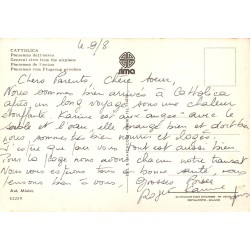 CATTOLICA
Panorama dall'aereo
General view from the airplane
Panorama de l'avion
Panorama vom Flugzeug gesehen
sima
4.9/8
Chers Parents, Chère soeur,
Nous sommes bien arrivés à Cattolica
après un long voyage sous une chaleur
étouffante. Karine est aux anges avec le
sable et l'eau, elle mange bien et dort bien
nous sommes bien nourri et logés.
J'espère que pour vous tout est aussi bien
Sur la plage nous avons chacun notre transat
Nous vous espérons tous en bonne santé, nous
pensons bien à vous,
Grosses Bises
Roger Karine